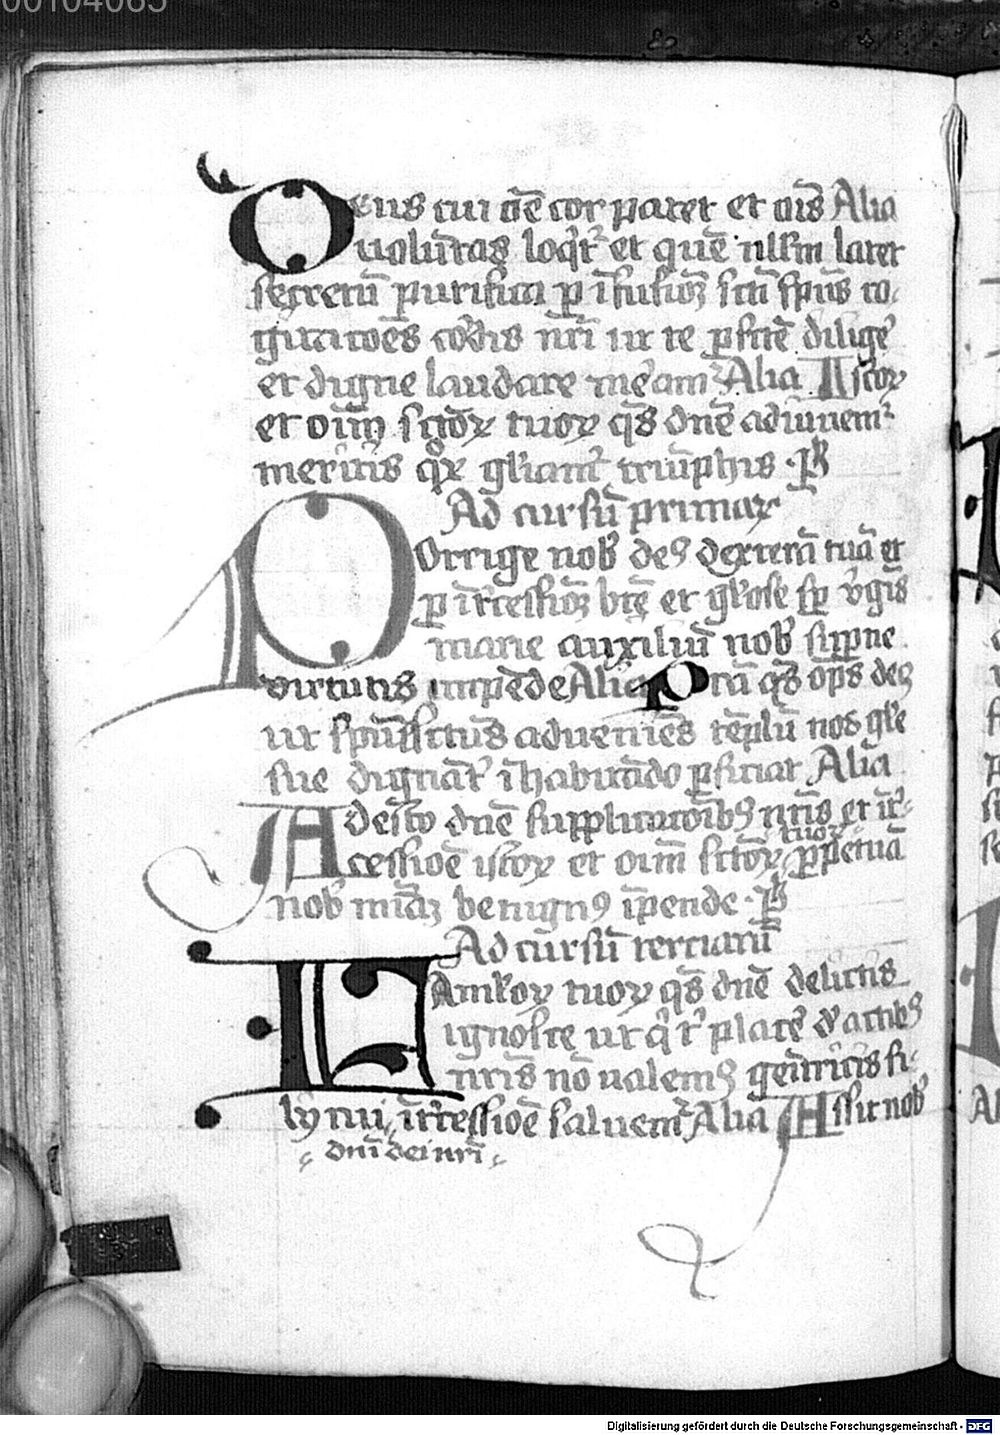 00104065
Deus cui oē̄ cor patet et oīs Alia
volūtas loq̄t͛ et quē nllm̄ latet
secretū purifica ꝑ īfusiōꝫ scti spūs co⸗
gitatoēs cordis nr̄i ut te ꝑfcē dilige͛
et digne laudare me͛am͛ Alia Istoꝝ
et oīm sctōꝝ tuoꝝ qs̄ dnē adiuuem͛
meritis qͦꝝ gl̄iant͛ triūphis · P͛
Ad cursū primaꝝ
Porrige nob̄ deꝰ dexterā tuā et
ꝑ īt͛cessiōꝫ btē et gl̄ose sꝑ v͛gīs
marie auxiliū nob̄ suꝑne
virtutis īmpēde Alia Porta qs̄ oīps deꝰ
ut spūs sctūs adueniēs tēplū nos gl̄e
sue dignāt͛ īhabitādo ꝑficiat Alia
Adesto dnē supplicatoībꝰ nr̄is et īt͛⸗
cessioē istoꝝ et oīm sctōꝝ tuoꝝ ꝑpetuā
nob̄ mīaꝫ benignꝰ īpende · P͛
Ad cursū terciarū
Famloꝝ tuoꝝ qs̄ dnē delictis
ignosce ut q̄ t͛ place͛ d͛ actibꝰ
nr̄is nō valemꝰ genitricis fi⸗
lij tui īt͛cessioē saluem͛ Alia Assit nob̄
dnī dei nr̄i
Digitalisierung gefördert durch die Deutsche Forschungsgemeinschaft - DFG